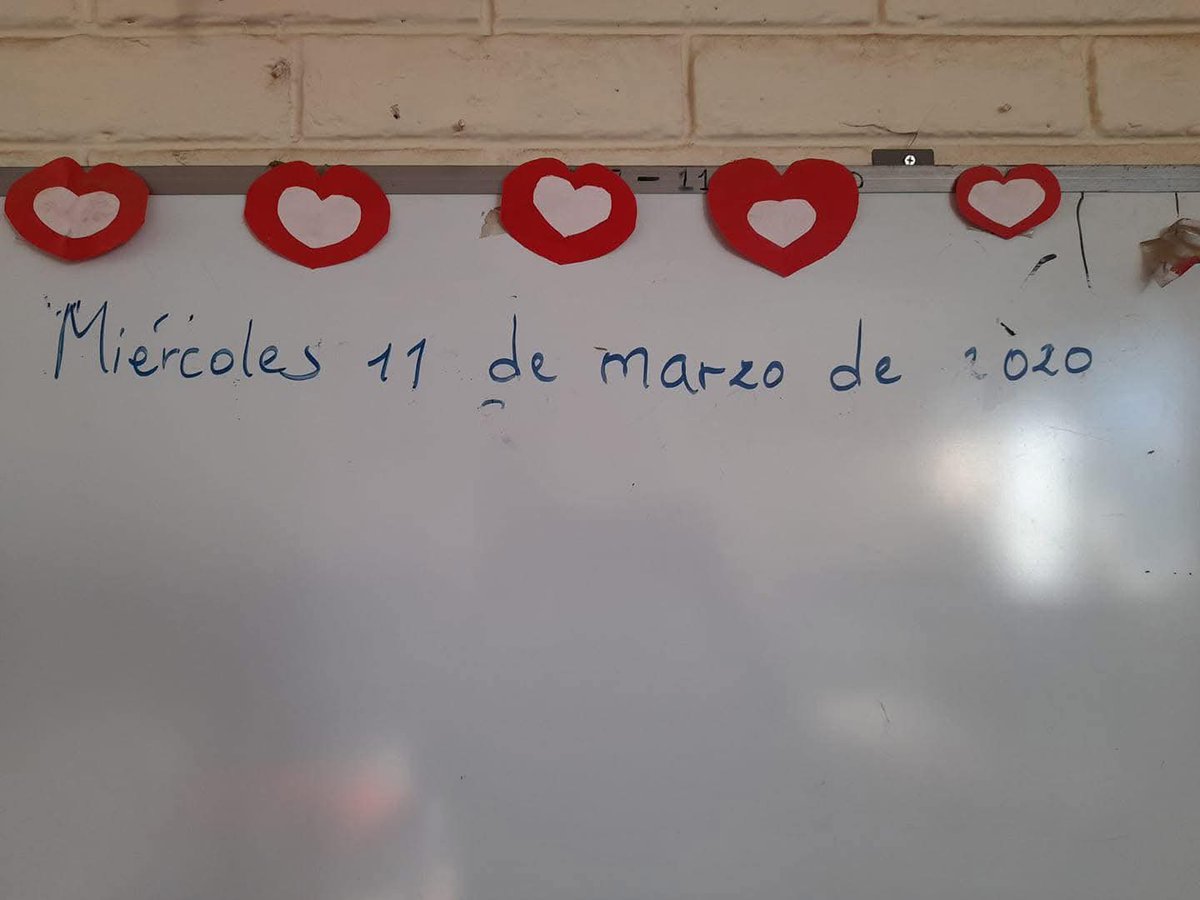 - 11
Miércoles 11 de marzo de 2020